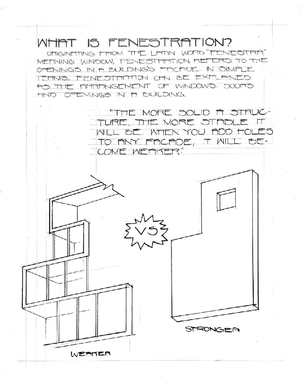 WHAT IS FENESTRATION?
ORIGINATING FROM THE LATIN WORD "FENESTRA"
MEANING WINDOW, FENESTRATION REFERS TO THE
OPENINGS IN A BUILDING'S FACADE. IN SIMPLE
TERMS, FENESTRATION CAN BE EXPLAINED
AS THE ARRANGEMENT OF WINDOWS, DOORS
AND OPENINGS IN A BUILDING.
"THE MORE SOLID A STRUC-
TURE, THE MORE STABLE IT
WILL BE. WHEN YOU ADD HOLES
TO ANY FACADE, IT WILL BE-
COME WEAKER"
VS
STRONGER
WEAKER